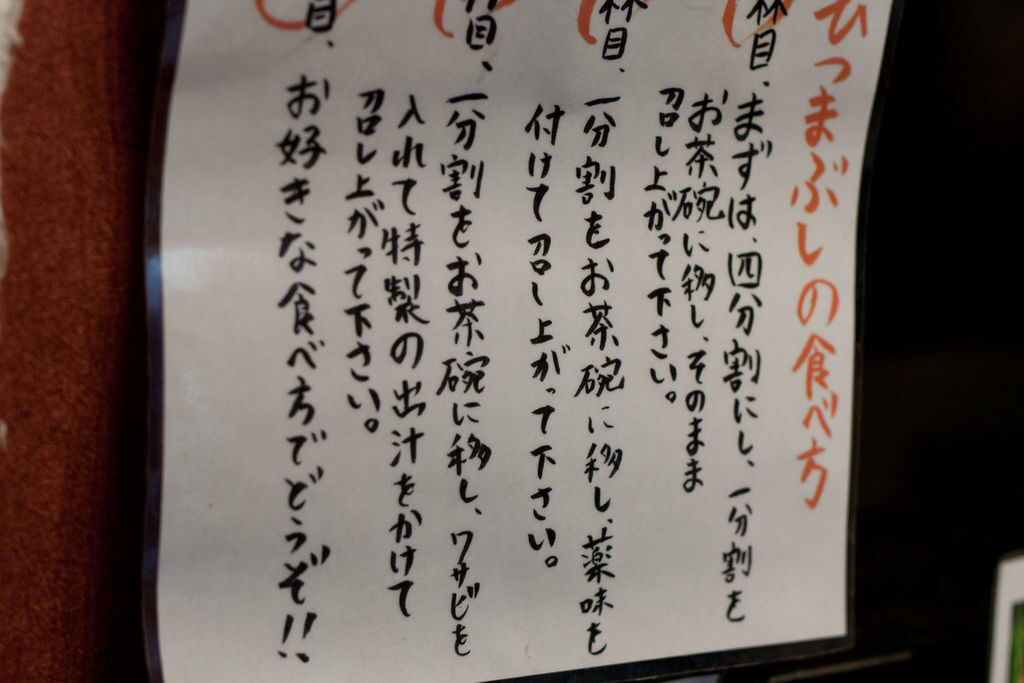 ひつまぶしの食べ方
杯目、まずは、四分割にし、一分割を
お茶碗に移し、そのまま
召し上がって下さい。
杯目、一分割をお茶碗に移し、薬味を
付けて召し上がって下さい。
目、一分割をお茶碗に移し、ワサビを
入れて特製の出汁をかけて
召し上がって下さい。
目、お好きな食べ方でどうぞ!!